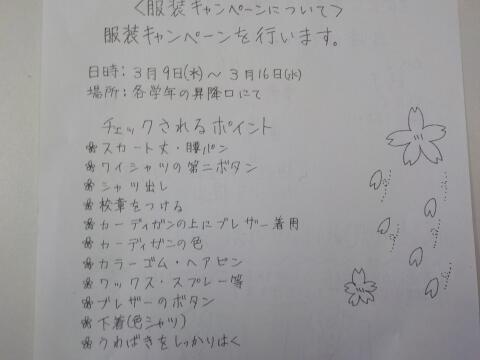 〈服装キャンペーンについて〉
服装キャンペーンを行います。
日時：3月9日(水)～3月16日(水)
場所：各学年の昇降口にて
チェックされるポイント
❀スカート丈・腰パン
❀ワイシャツの第二ボタン
❀シャツ出し
❀校章をつける
❀カーディガンの上にブレザー着用
❀カーディガンの色
❀カラーゴム・ヘアピン
❀ワックス・スプレー等
❀ブレザーのボタン
❀下着(色シャツ)
❀うわばきをしっかりはく